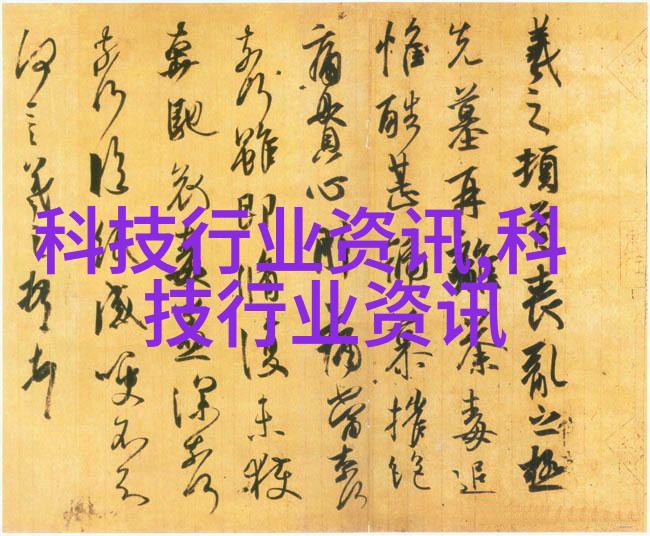 科技行业资讯,科
技行业资讯
羲之頓首喪亂之極
先墓再離荼毒追
惟酷甚號慕摧絕
痛貫心肝痛當奈何
奈何雖即脩復未獲
奔馳哀毒益深奈何
奈何臨紙感哽不知
何言羲之頓首